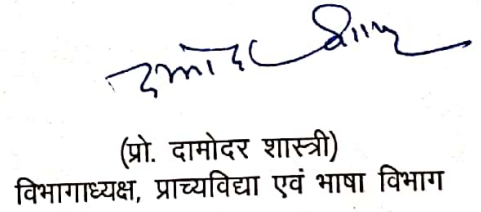 दामोदर शास्त्री
(प्रो. दामोदर शास्त्री)
विभागाध्यक्ष, प्राच्यविद्या एवं भाषा विभाग